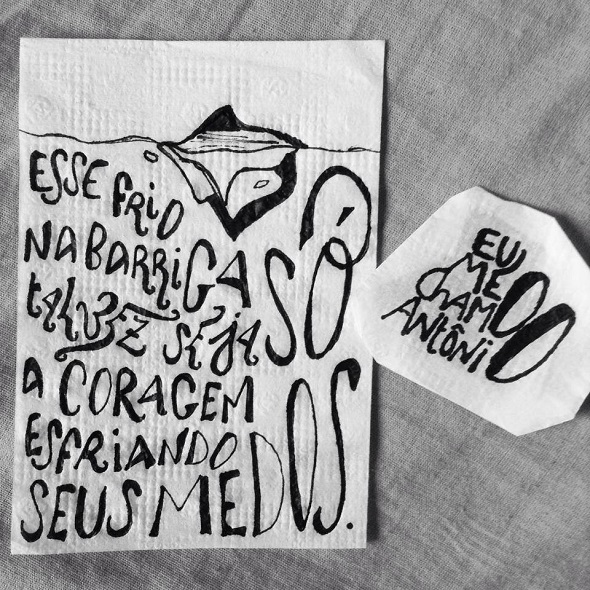 ESSE FRIO
NA BARRIGA
TALVEZ SEJA SÓ
A CORAGEM
ESFRIANDO
SEUS MEDOS.
EU
ME
CHAMO
ANTÔNIO